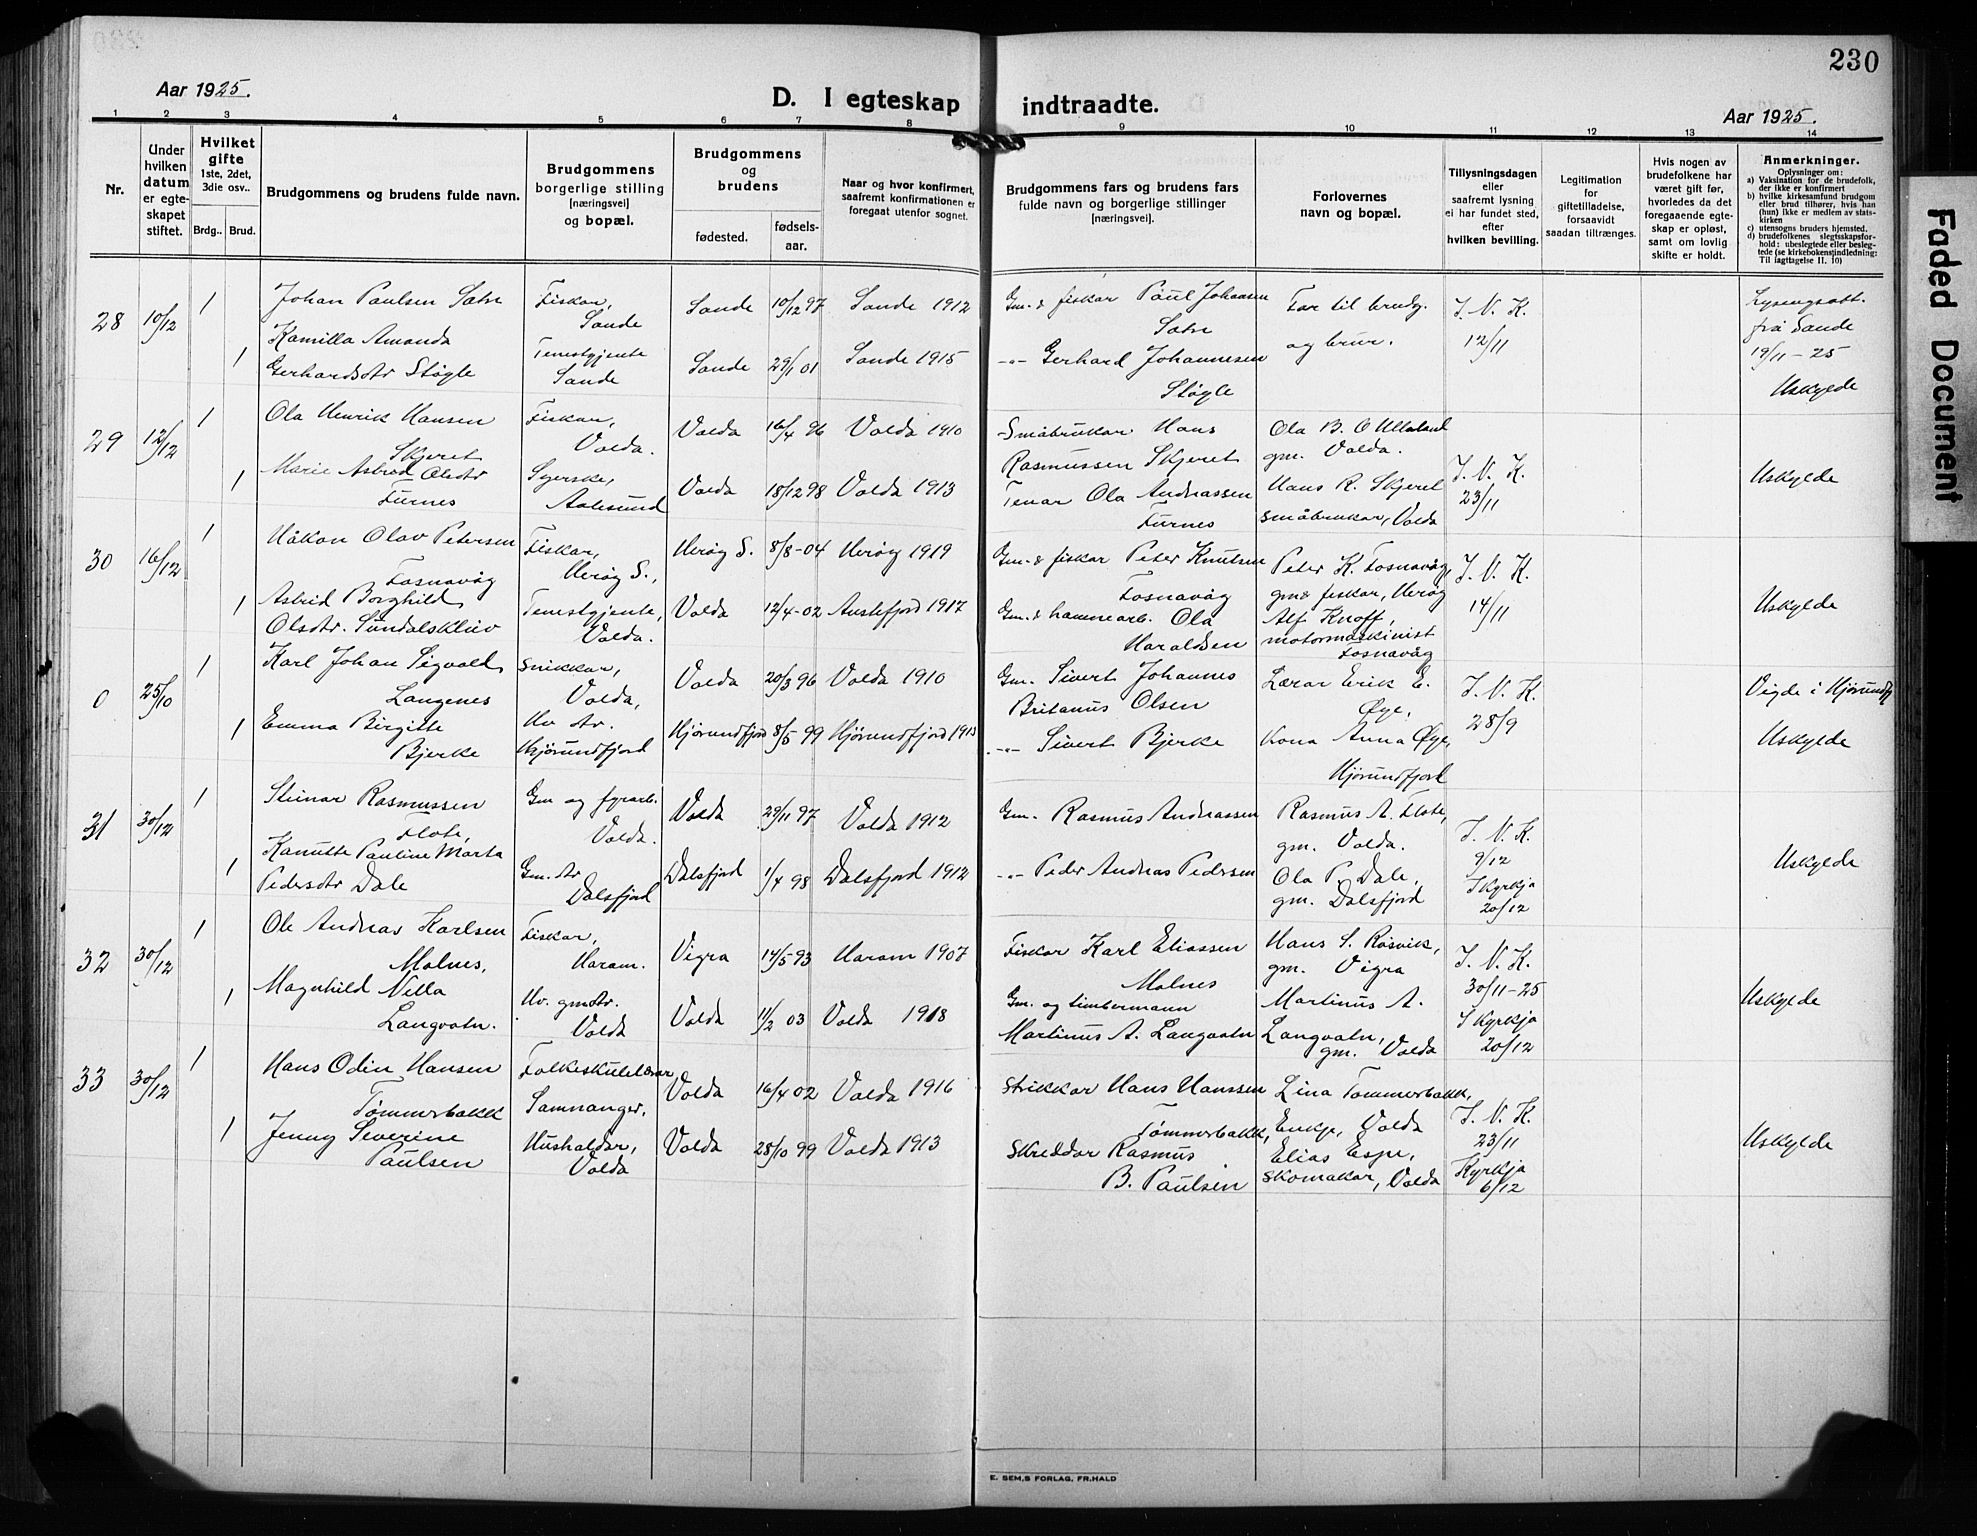 230
Aar 1925.
D. I egteskap indtraadte.
Aar 1925.
1 2 3 4 5 6 7 8 9 10 11 12 13 14
Nr.
Under hvilken datum er egteskapet stiftet.
Hvilket gifte 1ste, 2det, 3die osv..
Brdg.. Brud.
Brudgommens og brudens fulde navn.
Brudgommens borgerlige stilling [næringsvei] og bopæl.
Brudgommens og brudens
fødested.
fødselsaar.
Naar og hvor konfirmert, saafremt konfirmationen er foregaat utenfor sognet.
Brudgommens fars og brudens fars fulde navn og borgerlige stillinger [næringsvei].
Forlovernes navn og bopæl.
Tillysningsdagen eller saafremt lysning ei har fundet sted, efter hvilken bevilling.
Legitimation for giftetilladelse, forsaavidt saadan tiltrænges.
Hvis nogen av brudefolkene har været gift før, hvorledes da det foregaaende egteskap er opløst, samt om lovlig skifte er holdt.
Anmerkninger.
Oplysninger om:
a) Vaksination for de brudefolk, der ikke er konfirmert
b) hvilke kirkesamfund brudgom eller brud tilhører, hvis han (hun) ikke er medlem av statskirken
c) utensogns bruders hjemsted.
d) brudefolkenes slegtsskapsforhold: ubeslegtede eller beslegtede (se kirkebokens indledning: Til iagttagelse II. 10)
28 10/12 1 Johan Paulsen Fiskar, Sande Sande 10/12 97 Sande 1912 Gm. & fiskar Paul Johansen Far til brudg. og brur. I. N. K. 12/11 Lysingsatt. frå Sande 19/11-25
1 Kamilla Amanda Gerhardsdtr Støyle Tenestgjente Sande Sande 29/1 01 Sande 1915 -"- Gerhard Johannesen Støyle Uskylde
29 12/12 1 Ola Henrik Hansen Skjeret Fiskar, Volda. Volda 16/4 96 Volda 1910 Småbrukar Hans Rasmussen Skjeret Ola B. O Ulleland gm. Volda. I. N. K. 23/11 Uskylde
1 Marie Astrid Olsdtr Furnes Syerske, Aalesund Volda 18/12 98 Volda 1913 Ola Andreassen Furnes Hans R. Skjeret småbrukar, Volda
30 16/12 1 Håkon Olav Petersen Fosnavåg Fiskar, Herøy S., Herøy S. 8/8-04 Herøy 1919 Gm. & fiskar Peter Knutsen Fosnavåg Peter K. Fosnavåg, gm & fiskar, Herøy I. N. K. 14/11 Uskylde
1 Astrid Borghild Olsdtr. Sundalskliv Tenestgjente, Volda. Volda 12/4-02 Austefjord 1917 Gm. & hamnearb. Ola Haraldsen Alf Knoff, motormaskinist Fosnavåg
0 25/10 1 Karl Johan Sigvald Langenes Snikkar, Volda, Volda 20/3 96 Volda 1910 Gm. Sivert Johannes Britanus Olsen Lærar Erik E. Øye, I. N. K. 28/9 Vigde i Hjørundfj
1 Emma Birgitte Bjerke Hv dtr. Hjørundfjord Hjørundfjord 8/5 99 Hjørundfjord 1913 -"- Sivert Bjerke Kona Anna Øye, Hjørundfjord Uskylde
31 30/12 1 Steinar Rasmussen Flote, Gm og fyrarb. Volda. Volda 29/11 97 Volda 1912 Gm. Rasmus Andreassen Rasmus A. Flote, gm. Volda. I. N. K. 9/12 Uskylde
1 Kanutte Pauline Marta Pedersdtr Dale Gm. dtr Dalsfjord Dalsfjord 1/4 98 Dalsfjord 1912 -"- Peder Andreas Pedersen Ola P. Dale, gm. Dalsfjord I Kyrkja 20/12
32 30/12 1 Ole Andreas Karlsen Molnes, Fiskar, Haram. Vigra 14/5 93 Haram 1907 Fiskar Karl Eliassen Molnes Hans S. Røsvik, gm. Vigra I. N. K. 30/11-25 Uskylde
1 Magnhild Nella Langvatn. Hv. gmdtr. Volda Volda 11/2 03 Volda 1918 Gm. og timbermann Martinus A. Langvatn Martinus A. Langvatn, gm. Volda I Kyrkja 20/12
33 30/12 1 Hans Odin Hansen Tømmerbakk Folkeskulelærar Samnanger, Volda 16/4 02 Volda 1916 Strikkar Hans Hanssen Tømmerbakk, Lina Tømmerbakk, Enkje, Volda I. N. K. 23/11 Uskylde
1 Jenny Severine Paulsen Hushaldar, Volda Volda 28/10 99 Volda 1913 Skreddar Rasmus B. Paulsen Elias Espe, skomakar, Volda Kyrkja 6/12
E. SEM,S FORLAG, FR.HALD
Faded Document